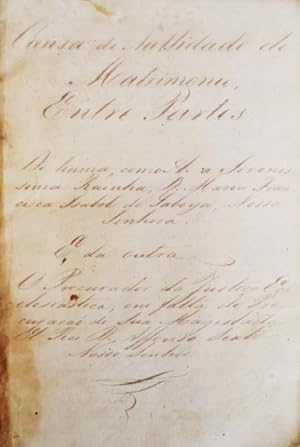 Cauza de Nullidade de
Matrimonio,
Entre Partes
De huma, como A. a Serenis
sima Rainha, D. Maria Fran
cisca Isabel de Saboya, Nossa
Senhora.
E da outra
O Procurador da Justiça Ec
clesiastica, em falta de Pro
curação de Sua Magestade
El Rei D. Affonso Sexto
Nosso Senhor.